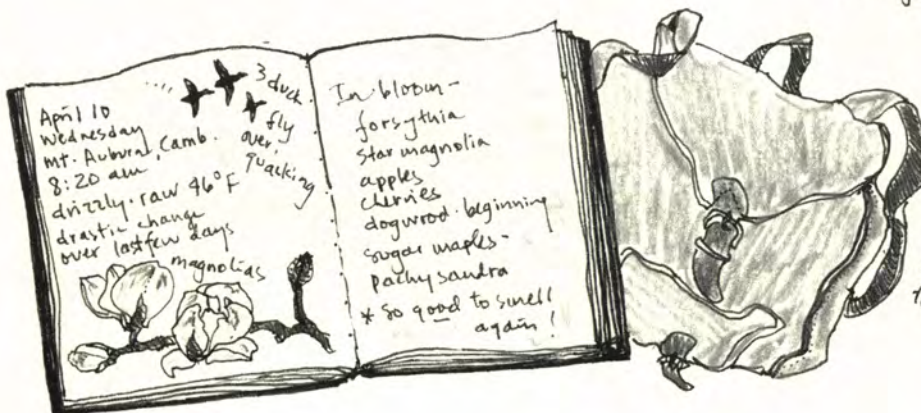 April 10
Wednesday
Mt. Auburn, Camb.
8:20 am
drizzly. raw 46°F
drastic change
over last few days
magnolias
3 duck
fly
over,
quacking
In bloom -
forsythia
star magnolia
apples
cherries
dogwood. beginning
sugar maples -
pachysandra
* so good to smell
again!